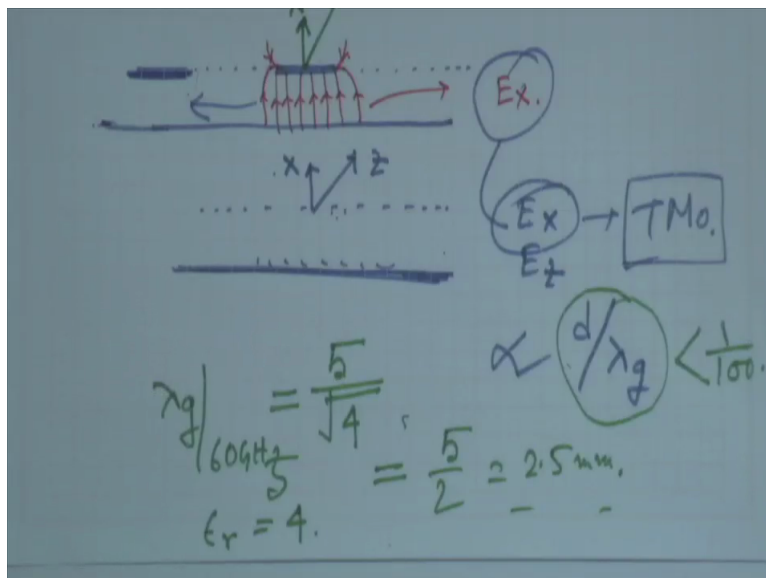 x
Ex.
x z
Ex → TMo.
Ez
∝ d/λg < 1/100.
λg|60GHz = 5/√4
5 = 5/2 = 2.5mm.
εr = 4.